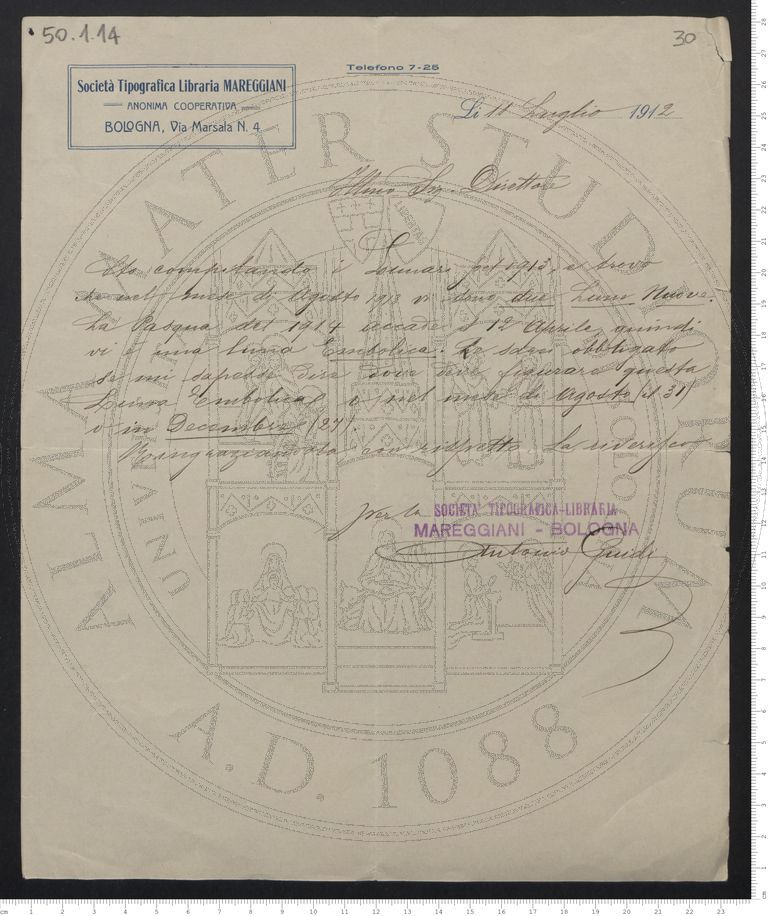 50.1.14
30
Telefono 7-25
Società Tipografica Libraria MAREGGIANI
ANONIMA COOPERATIVA
BOLOGNA, Via Marsala N. 4
Li 11 Luglio 1912
Illmo Sig. Direttore
Sto compilando i Lunari pel 1913, e trovo
che nel mese di Agosto 1913 vi sono due Lune Nuove.
La Pasqua del 1914 accade il 12 Aprile, quindi
vi è una luna Embolica. Le sarei obbligato
se mi sapesse dire dove deve figurare questa
Luna Embolica o nel mese di Agosto (il 31)
o in Decembre (27).
Ringraziandola con rispetto La riverisco
per la SOCIETÀ TIPOGRAFICA-LIBRARIA
MAREGGIANI - BOLOGNA
Antonio Guidi
ALMA MATER STUDIORUM
A.D. 1088
LIBERTAS